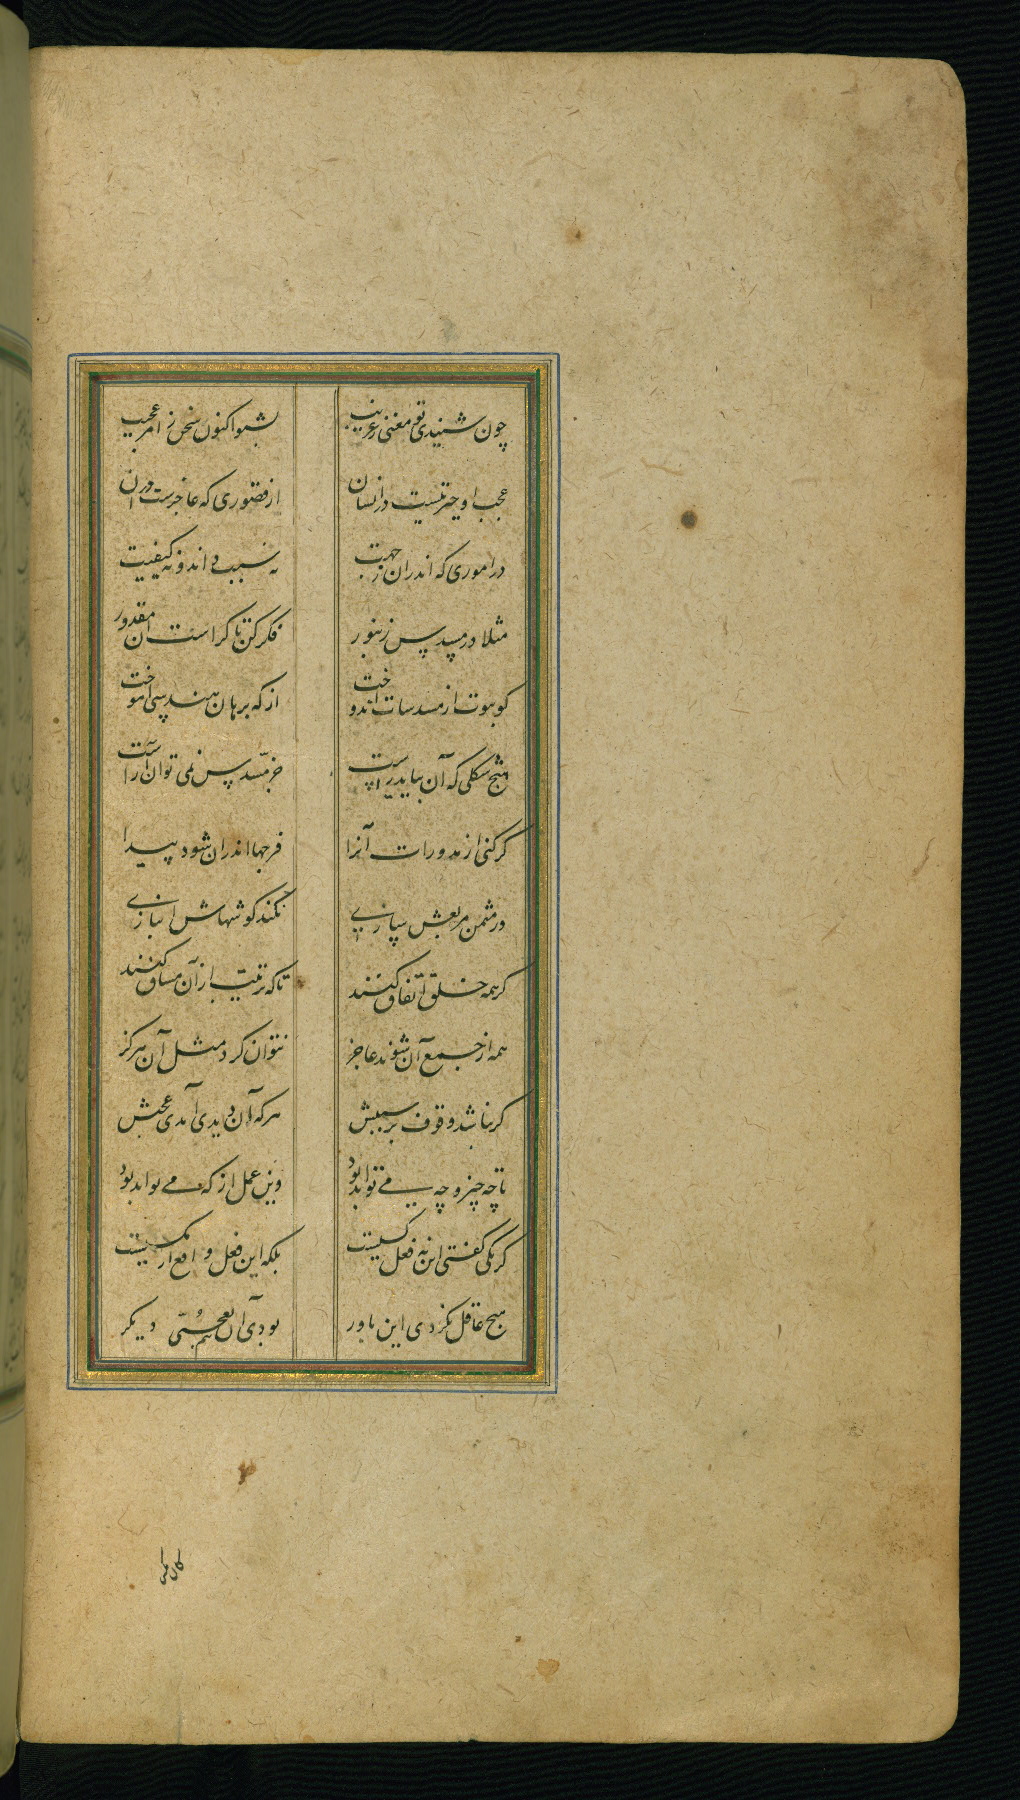 چون شنیدی تو معنی غریب بشنو اکنون سخن ز امر عجیب
عجب او حیرتیست در انسان از قصوری که عاجزست در آن
در اموری که اندران ز جهت نه سبب داند و نه کیفیت
مثلا در مسدس زنبور فکر کن تا کراست آن مقدور
کو بیوت از مسدسات اندوخت از که برهان هندسی آموخت
هیچ شکلی که آن بباید راست جز مسدس نمی توان آراست
گر کنی از مدورات آنرا فرجها اندران شود پیدا
ور مثمن مربعش سازی نکند گوشهاش انبازی
گر همه خلق اتفاق کنند تا که ترتیب از آن مساق کنند
همه از جمع آن شوند عاجز نتوان کرد مثل آن هرگز
گر نباشد وقوف بر سببش هر که آن دیدی آمدی عجبش
تا چه چیز و چه می تواند بود وین عمل از که می تواند بود
گر یکی گفتی این نه فعل کسیست بلکه این فعل واقع از مگسیست
هیچ عاقل نکردی این باور بودی آن هم تعجبی دیگر